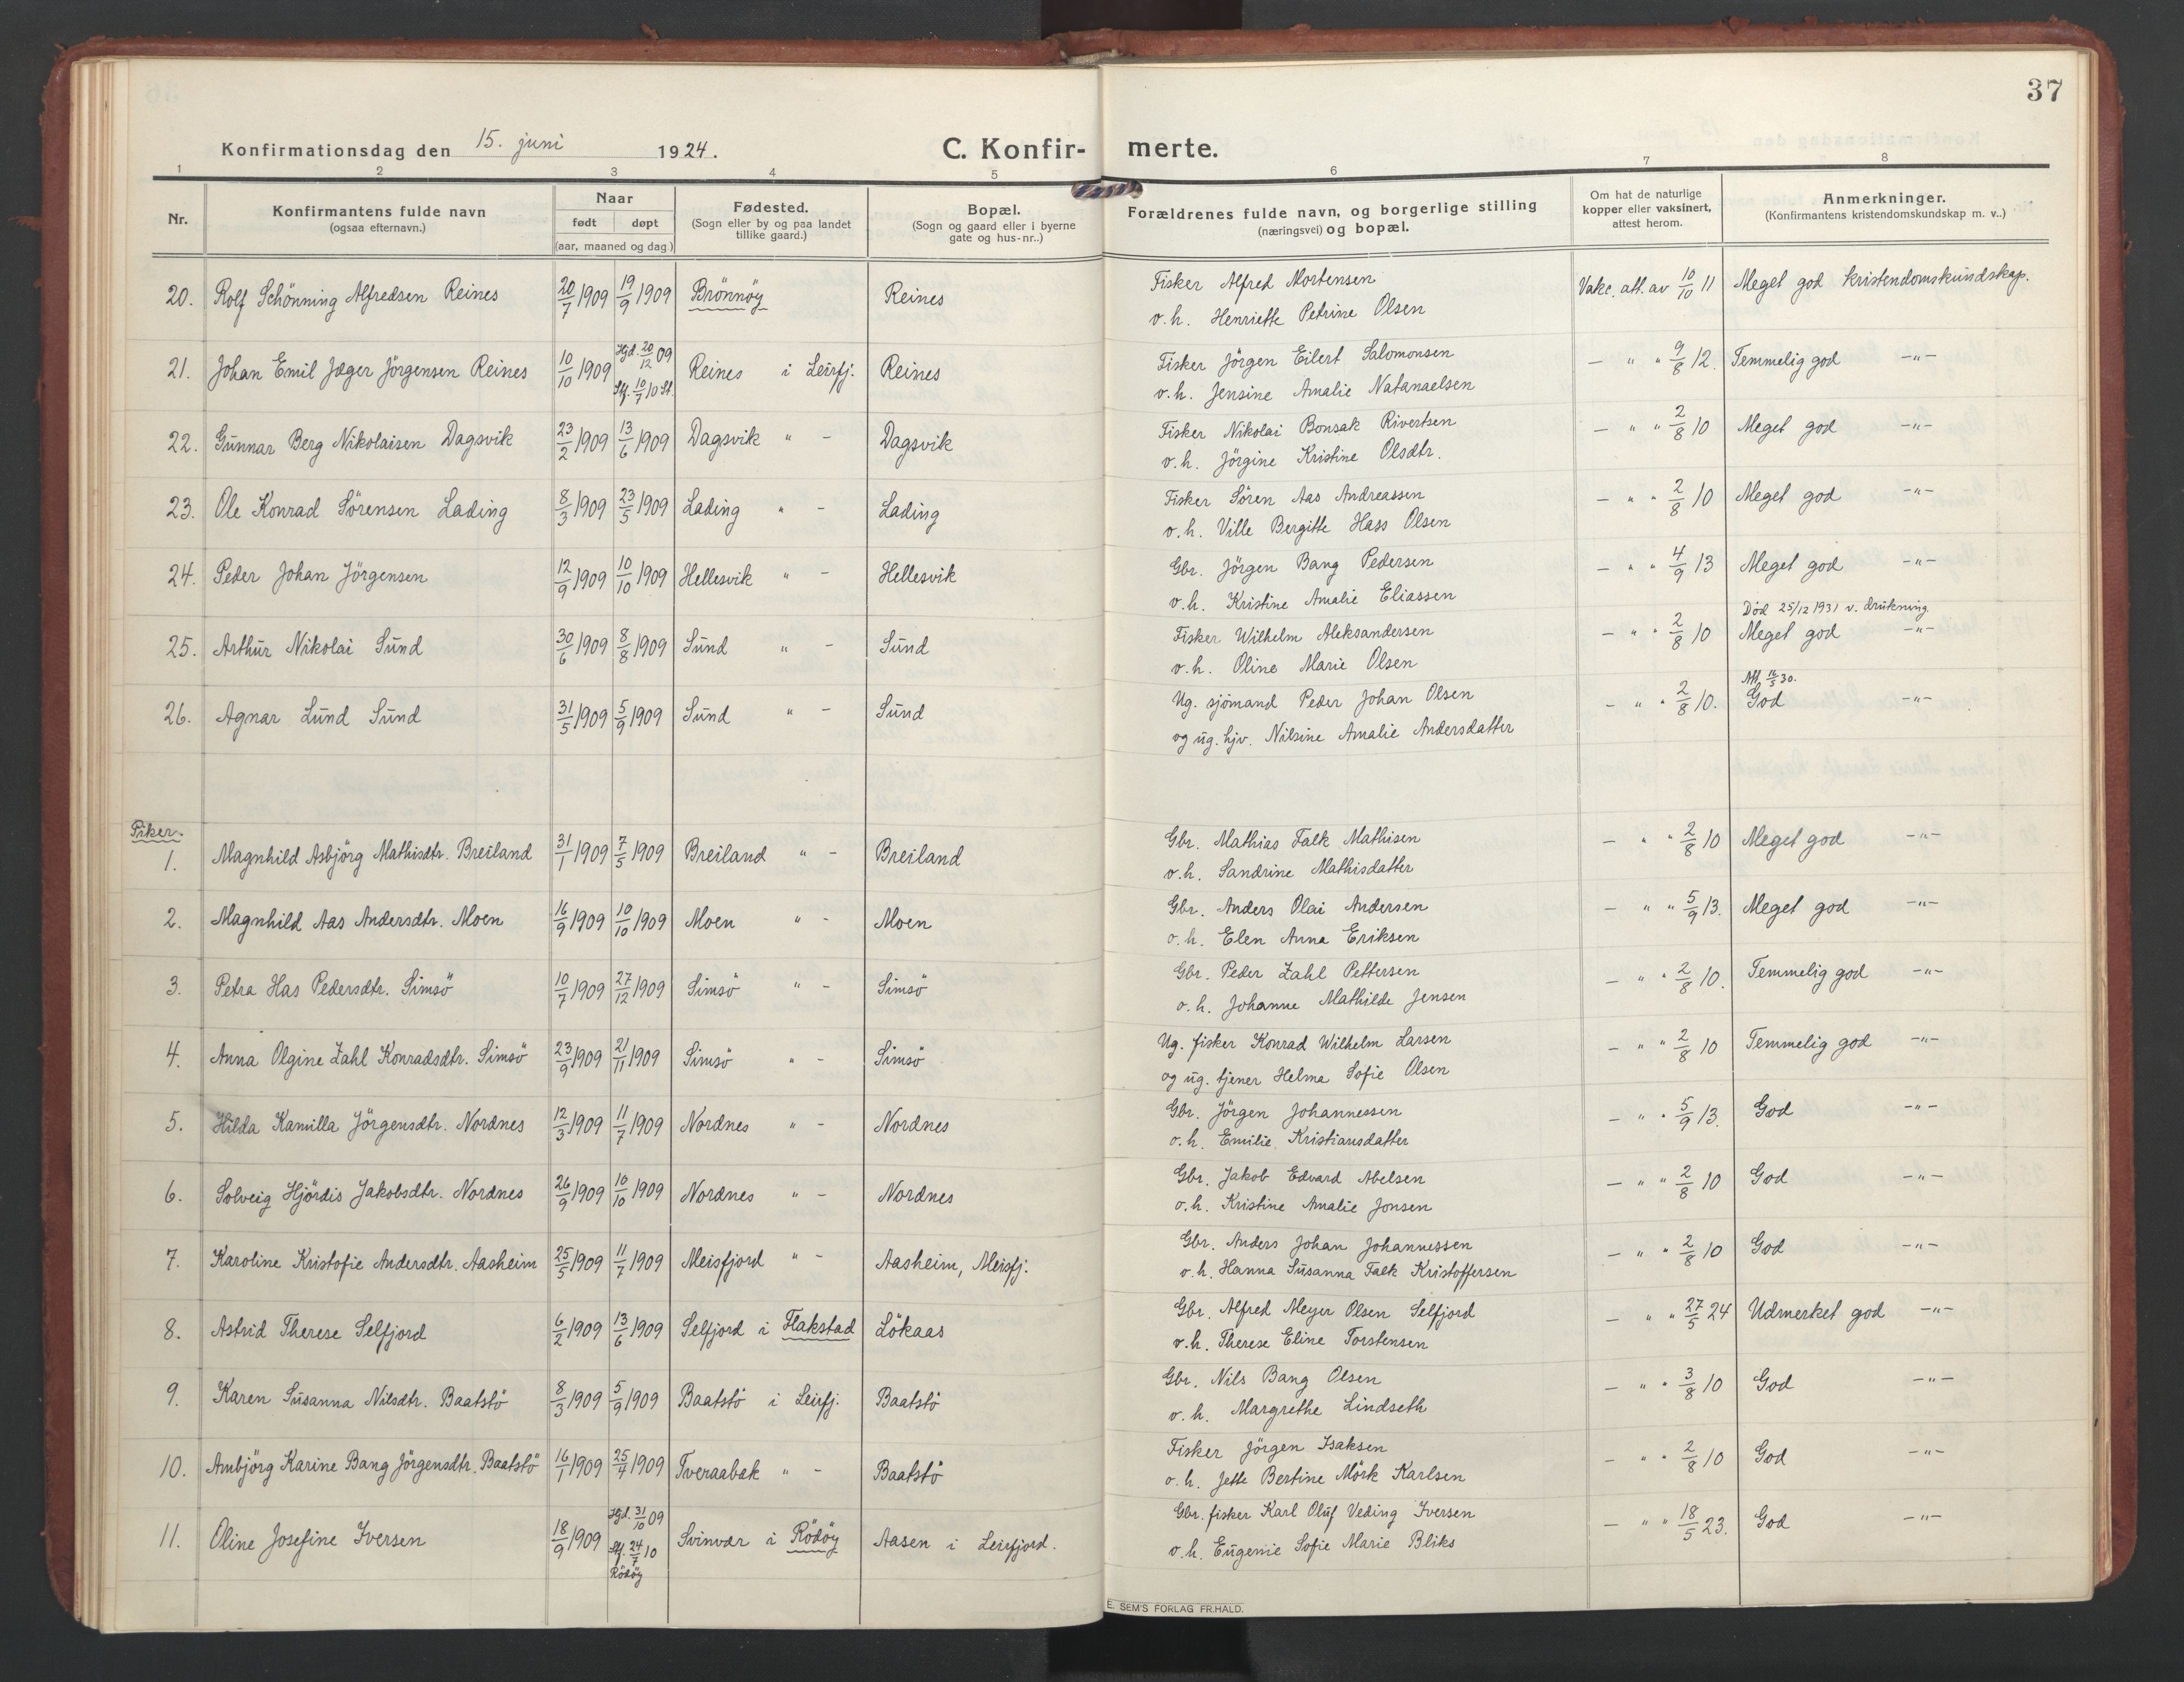 37
Konfirmationsdag den 15. juni 1924. C. Konfirmerte.
1 2 3 4 5 6 7 8
Nr. Konfirmantens fulde navn (ogsaa efternavn.) Naar født døpt (aar, maaned og dag.) Fødested. (Sogn eller by og paa landet tillike gaard.) Bopæl. (Sogn og gaard eller i byerne gate og hus-nr..) Forældrenes fulde navn, og borgerlige stilling (næringsvei) og bopæl. Om hat de naturlige kopper eller vaksinert, attest herom. Anmerkninger. (Konfirmantens kristendomskundskap m. v..)
20. Rolf Schönning Alfredsen Reines 20/7 1909 19/9 1909 Brönnöy Reines Fisker Alfred Mortensen Vakc. att. av 10/10 11 Meget god kristendomskundskap.
o. h. Henriette Petrine Olsen
21. Johan Emil Jæger Jörgensen Reines 10/10 1909 Hjd. 20/12 09 Reines i Leirfj. Reines Fisker Jörgen Eilert Salomonsen — " " 9/8 12. Temmelig god —"—
Stf. 10/7 10 St. o. h. Jensine Amalie Natanaelsen
22. Gunnar Berg Nikolaisen Dagsvik 23/2 1909 13/6 1909 Dagsvik " — Dagsvik Fisker Nikolai Bonsak Rivertsen — " " 2/8 10 Meget god —"—
o. h. Jörgine Kristine Olsdtr.
23. Ole Konrad Sörensen Lading 8/3 1909 23/5 1909 Lading " — Lading Fisker Sören Aas Andreassen — " " 2/8 10 Meget god —"—
o. h. Ville Bergitte Hass Olsen
24. Peder Johan Jörgensen 12/9 1909 10/10 1909 Hellesvik " — Hellesvik Gbr. Jörgen Bang Pedersen — " " 4/9 13 Meget god —"—
o. h. Kristine Amalie Eliassen
Död 25/12 1931 v. drukning.
25. Arthur Nikolai Sund 30/6 1909 8/8 1909 Sund " — Sund Fisker Wilhelm Aleksandersen — " " 2/8 10 Meget god —"—
o. h. Oline Marie Olsen
Att. 16/5 30.
26. Agnar Lund Sund 31/5 1909 5/9 1909 Sund " — Sund Ug. sjömand Peder Johan Olsen — " " 2/8 10. God —"—
og ug. hjv. Nilsine Amalie Andersdatter
Piker.
1. Magnhild Asbjörg Mathisdtr. Breiland 31/1 1909 7/5 1909 Breiland " — Breiland Gbr. Mathias Falk Mathisen — " " 2/8 10 Meget god —"—
o. h. Sandrine Mathisdatter
2. Magnhild Aas Andersdtr. Moen 16/9 1909 10/10 1909 Moen " — Moen Gbr. Anders Olai Andersen — " " 5/9 13. Meget god —"—
o. h. Elen Anna Eriksen
3. Petra Has Pedersdtr. Simsö 10/7 1909 27/12 1909 Simsö " — Simsö Gbr. Peder Zahl Pettersen — " " 2/8 10. Temmelig god —"—
o. h. Johanne Mathilde Jensen
4. Anna Olgine Zahl Konradsdtr. Simsö 23/9 1909 21/11 1909 Simsö " — Simsö Ug. fisker Konrad Wilhelm Larsen — " " 2/8 10 Temmelig god —"—
og ug. tjener Helma Sofie Olsen
5. Hilda Kamilla Jörgensdtr. Nordnes 12/3 1909 11/7 1909 Nordnes " — Nordnes Gbr. Jörgen Johannessen — " " 5/9 13. God —"—
o. h. Emilie Kristiansdatter
6. Solveig Hjördis Jakobsdtr. Nordnes 26/9 1909 10/10 1909 Nordnes " — Nordnes Gbr. Jakob Edvard Abelsen — " " 2/8 10 God —"—
o. h. Kristine Amalie Jonsen
7. Karoline Kristofie Andersdtr. Aasheim 25/5 1909 11/7 1909 Meisfjord " — Aasheim, Meisfj. Gbr. Anders Johan Johannessen — " " 2/8 10 God —"—
o. h. Hanna Susanna Falk Kristoffersen
8. Astrid Therese Selfjord 6/2 1909 13/6 1909 Selfjord i Flakstad Lökaas Gbr. Alfred Meyer Olsen Selfjord — " " 27/5 24 Udmerket god —"—
o. h. Therese Eline Torstensen
9. Karen Susanna Nilsdtr. Baatstö 8/3 1909 5/9 1909 Baatstö i Leirfj. Baatstö Gbr. Nils Bang Olsen — " " 3/8 10 God —"—
o. h. Margrethe Lindseth
10. Ambjörg Karine Bang Jörgensdtr. Baatstö 16/1 1909 25/4 1909 Tveraabak " — Baatstö Fisker Jörgen Isaksen — " " 2/8 10 God —"—
o. h. Jette Bertine Mörk Karlsen
11. Oline Josefine Iversen 18/9 1909 Hjd. 31/10 09 Svinvær i Rödöy Aasen i Leirfjord. Gbr. fisker Karl Oluf Veding Iversen — " " 18/5 23. God —"—
Stf. 24/7 10 Rödöy o. h. Eugenie Sofie Marie Bliks
E. SEM'S FORLAG FR.HALD.